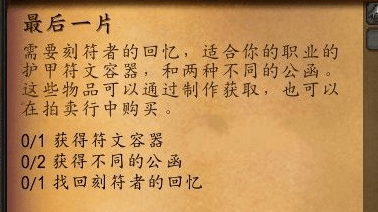 最后一片
需要刻符者的回忆，适合你的职业的
护甲符文容器，和两种不同的公函。
这些物品可以通过制作获取，也可以
在拍卖行中购买。
0/1 获得符文容器
0/2 获得不同的公函
0/1 找回刻符者的回忆